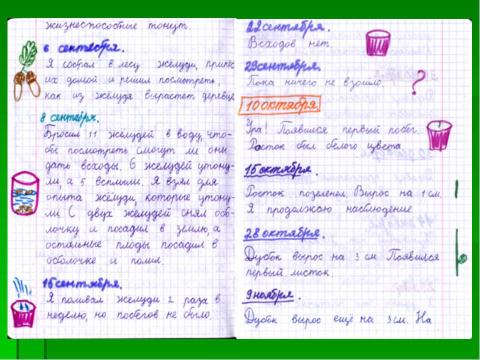 жизнеспособные тонут.
6 сентября.
Я собрал в лесу жёлуди, принёс
их домой и решил посмотреть,
как из жёлудя вырастет деревце
8 сентября.
Бросил 11 желудей в воду, что-
бы посмотреть смогут ли они
дать всходы. 6 желудей утону-
ли, а 5 всплыли. Я взял для
опыта жёлуди, которые утону-
ли. С двух желудей снял об-
лочку и посадил в землю, а
остальные плоды посадил в
оболочке и полил.
16 сентября.
Я поливал жёлуди 2 раза в
неделю, но побегов не было.
22 сентября.
Всходов нет.
29 сентября.
Пока ничего не взошло.
?
10 октября
Ура! Появился первый побег.
Росток был белого цвета.
15 октября.
Росток позеленел. Вырос на 1 см.
Я продолжаю наблюдение.
28 октября.
Дубок вырос на 3 см. Появился
первый листок.
9 ноября.
Дубок вырос ещё на 3 см. На